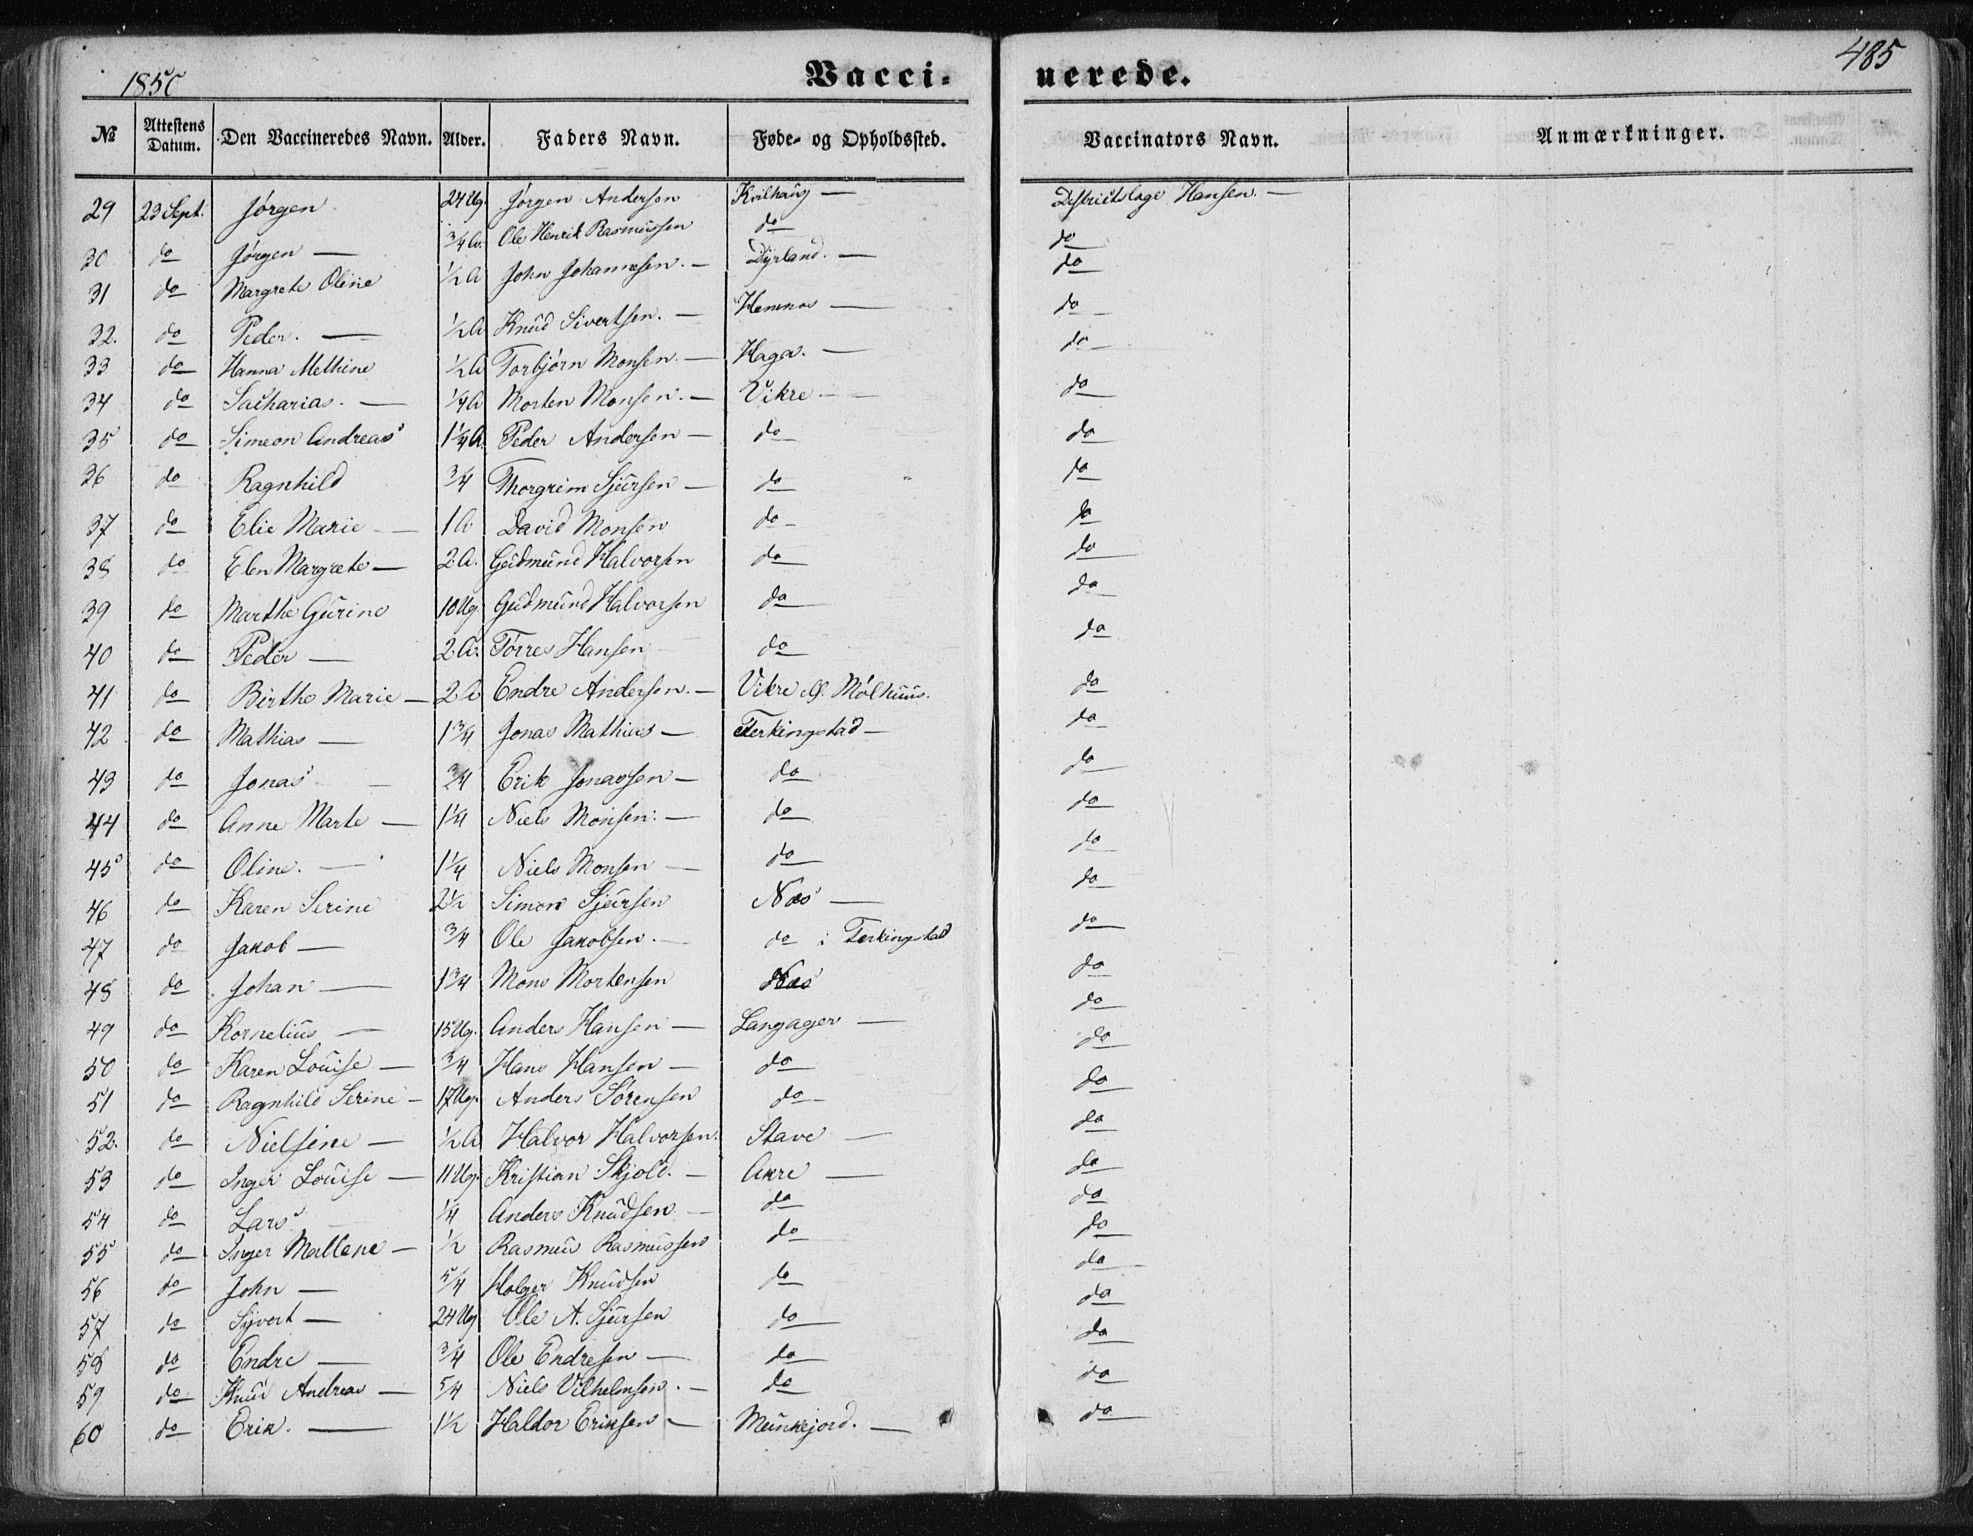 1850 Vacci- nerede. 485
№ Attestens Datum. Den Vaccineredes Navn. Alder. Faders Navn. Føde- og Opholdssted. Vaccinators Navn. Anmærkninger.
29 23 Sept. Jørgen 24 Ug. Jørgen Andersen Kvilhaug — Distriktslæge Hansen. —
30 do Jørgen — 3/4 A. Ole Henrik Rasmussen do do
31 do Margrete Oline 1/2 A John Johannesen. — Dyrland. — do
32. do Peder. — 1/2 A Knud Sivertsen. — Hemnes — do
33 do Hanna Methine 1/2 A Torbjørn Monsen. — Haga. — do
34 do Sacharias. — 1/4 A Morten Monsen. — Vikre — do
35 do Simeon Andreas 1 1/4 A. Peder Andersen — do do
36 do Ragnhild 3/4 Thorgrim Sjursen — do do
37 do Elie Marie — 1 A. David Monsen do do
38 do Elen Margrete — 2 A. Gudmund Halvorsen do do
39 do Marthe Gurine 10 Ug. Gudmund Halvorsen do do
40 do Peder — 2 A. Torres Hansen do do
41 do Birthe Marie — 2 A Endre Andersen. — Vikre Mølhuus. do
42 do Mathias — 1 3/4 Jonas Mathias — Ferkingstad — do
43 do Jonas — 3/4 Erik Jonassen — do do
44 do Anne Marte — 1 1/4 Niels Monsen. — do do
45 do Oline. — 1 1/4 Niels Monsen — do do
46 do Karen Serine 2 1/2 Simon Sjursen Næs — do
47 do Jakob — 3/4 Ole Jakobsen. — do i Ferkingstad do
48 do Johan — 1 3/4 Mons Mortensen Næs do
49 do Kornelius — 15 Ug. Anders Hansen — Langager — do
50 do Karen Louise — 3/4 Hans Hansen — do do
51 do Ragnhild Serine — 17 Ug. Anders Sørensen do do
52. do Nielsine — 1/2 A Halvor Halvorsen. Stave — do
53 do Inger Louise — 11 Ug. Kristian Skjold. — Akre — do
54 do Lars 1/4 Anders Knudsen — do do
55 do Inger Mallene — 1/2 Rasmus Rasmussen do do
56 do John — 5/4 Holger Knudsen do do
57 do Syvert — 24 Ug Ole A. Sjursen do do
58 do Endre — 3/4 Ole Endresen — do do
59 do Knud Andreas — 5/4 Niels Vilhelmsen. — do do
60 do Erik. — 1 1/2 Haldor Eriksen — Munkejord. — do